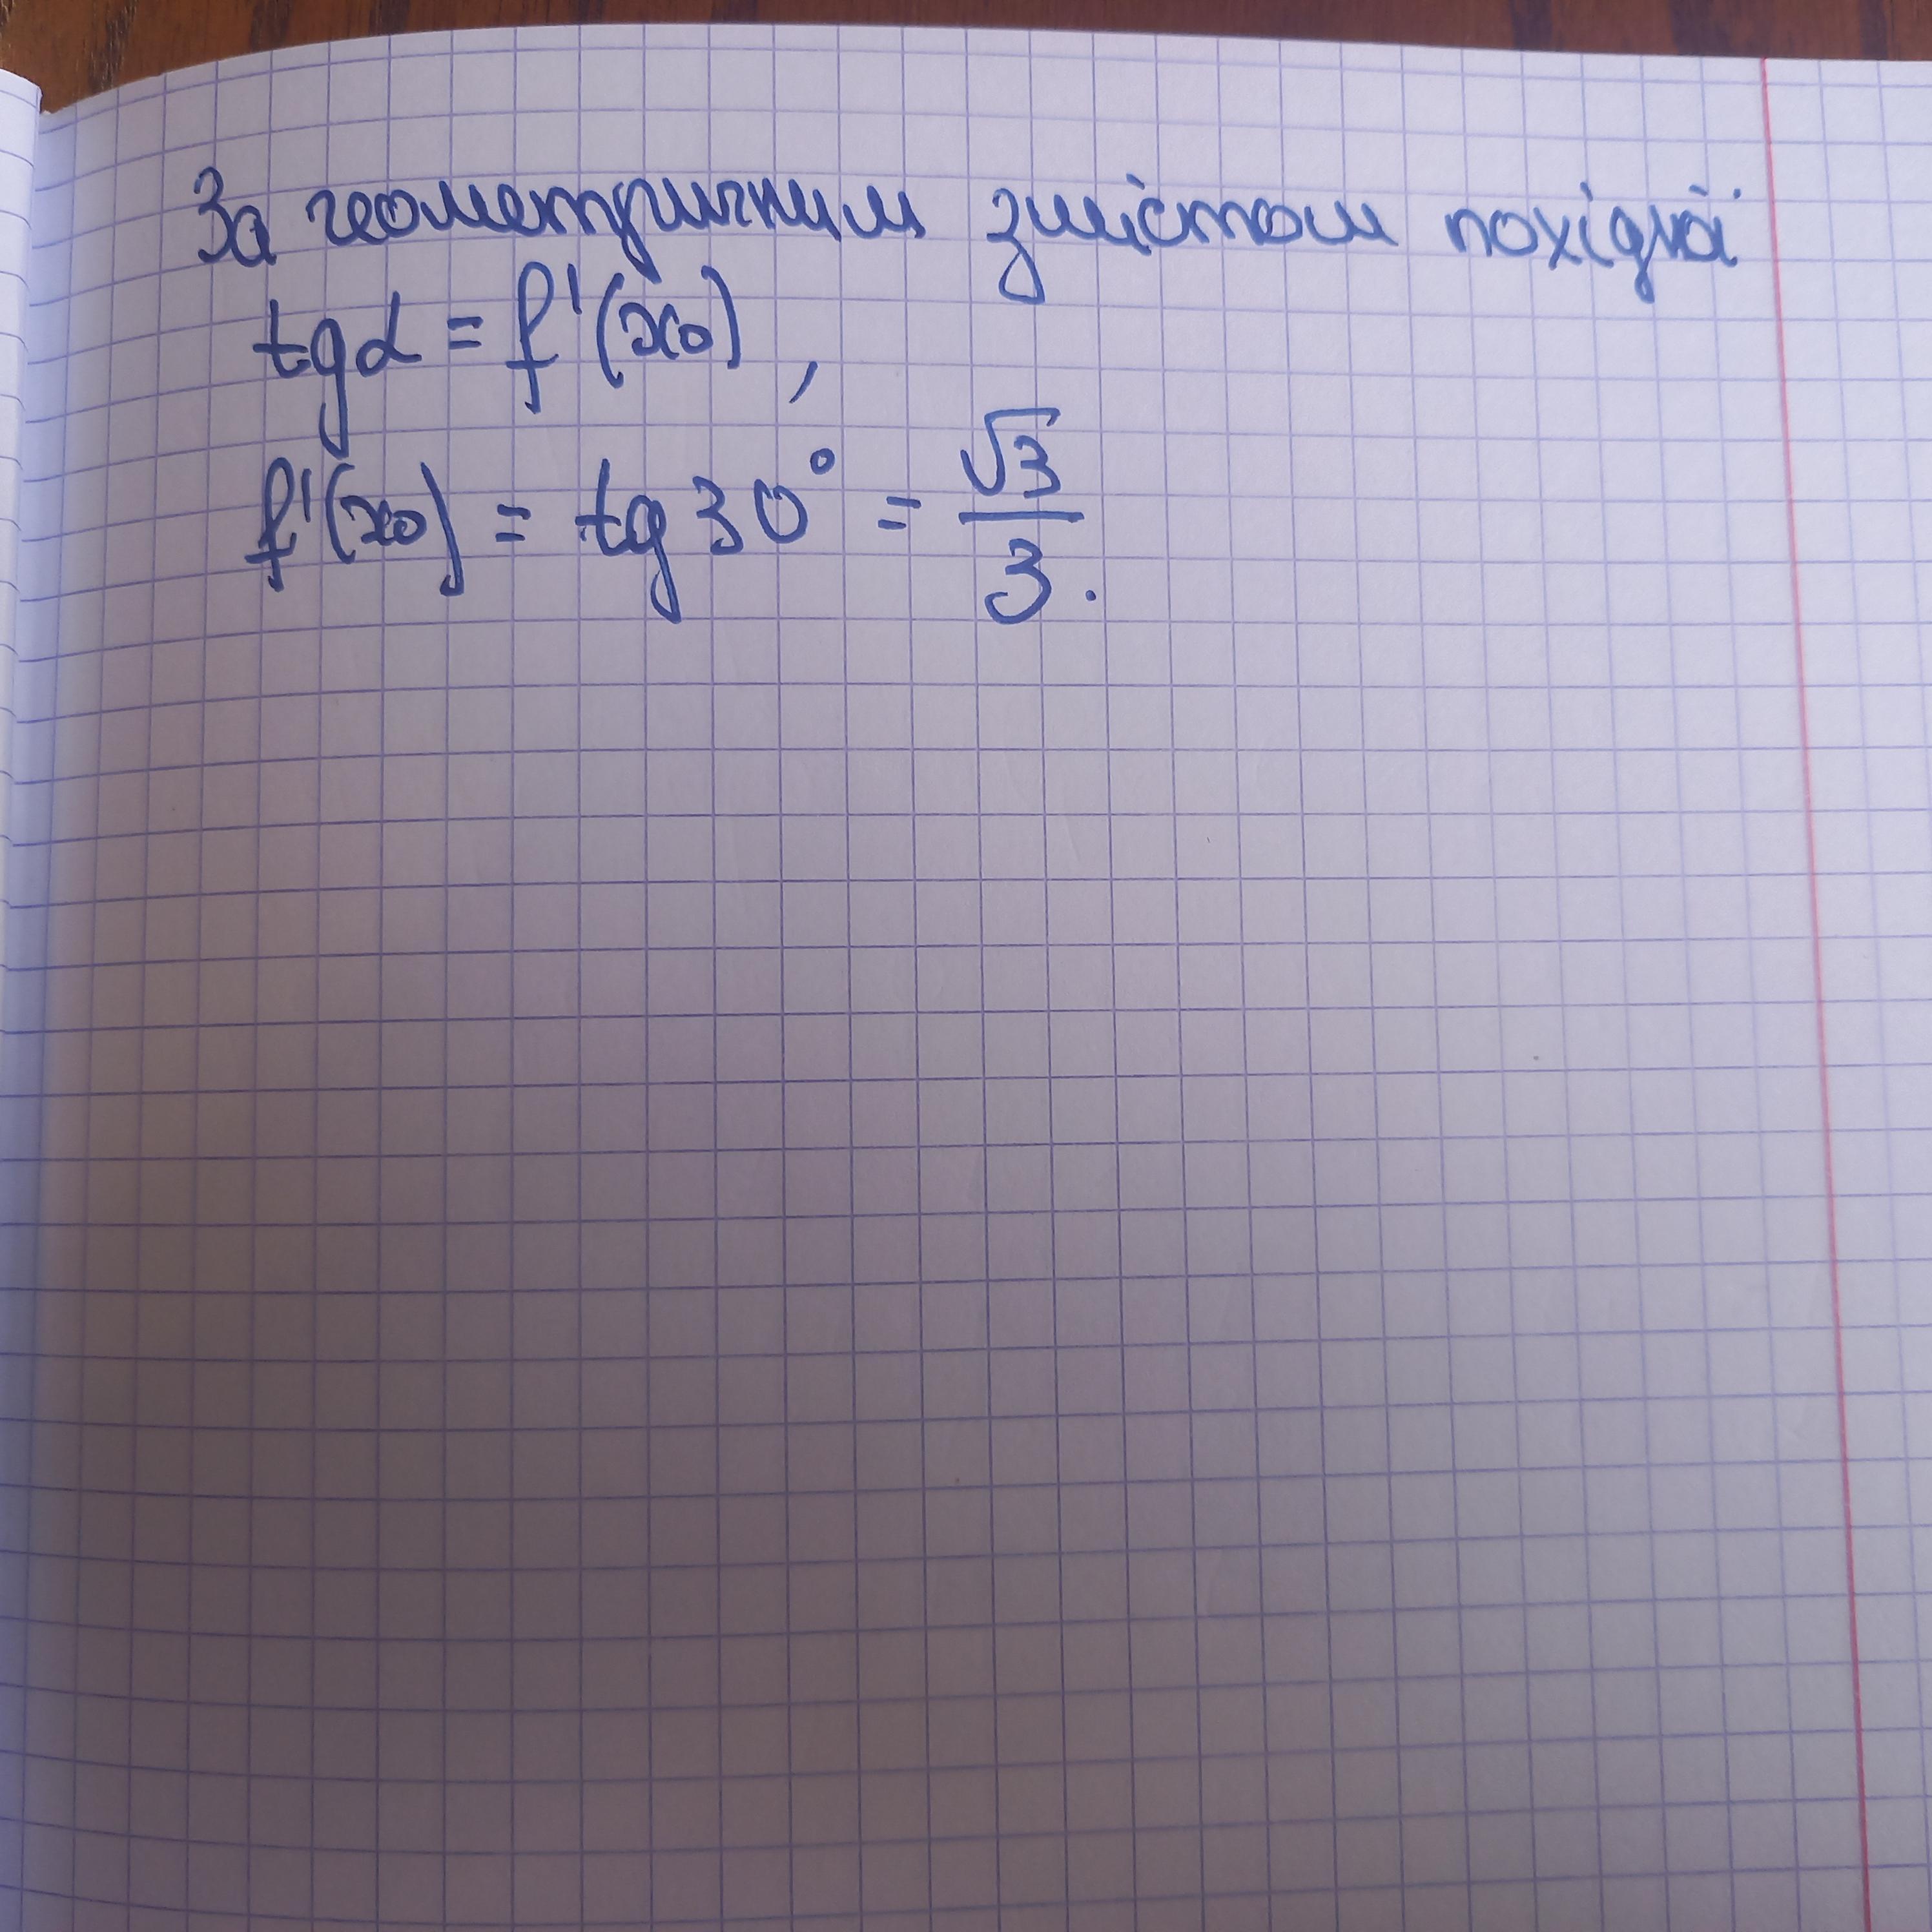 За геометричним змістом похідної
tgα = f'(x₀),
f'(x₀) = tg 30° = √3/3.